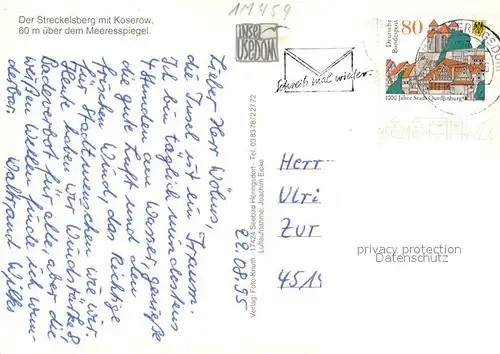 Der Streckelsberg mit Koserow,
60 m über dem Meeresspiegel.
1M459
INSEL
USEDOM
Schreib mal wieder.
Deutsche
Bundespost
80
1000 Jahre Stadt Quedlinburg
22.08.95
Lieber Herr Wölms,
die Insel ist ein Traum.
Ich bin täglich mindestens
4 Stunden am Wasser, genieße
die gute Luft und den
frischen Wind, das Richtige
für Stadtmenschen wie wir.
Heute haben wir Windstärke 8,
Badeverbot für alle, aber die
weißen Wellen finde ich wun-
derbar.
Waltraud
Verlag: Foto-Knuth · 17424 Seebad Heringsdorf · Tel. 038378/22772
Luftaufnahme: Joachim Eicke
Herr
Ulri
Zur
4519
privacy protection
Datenschutz